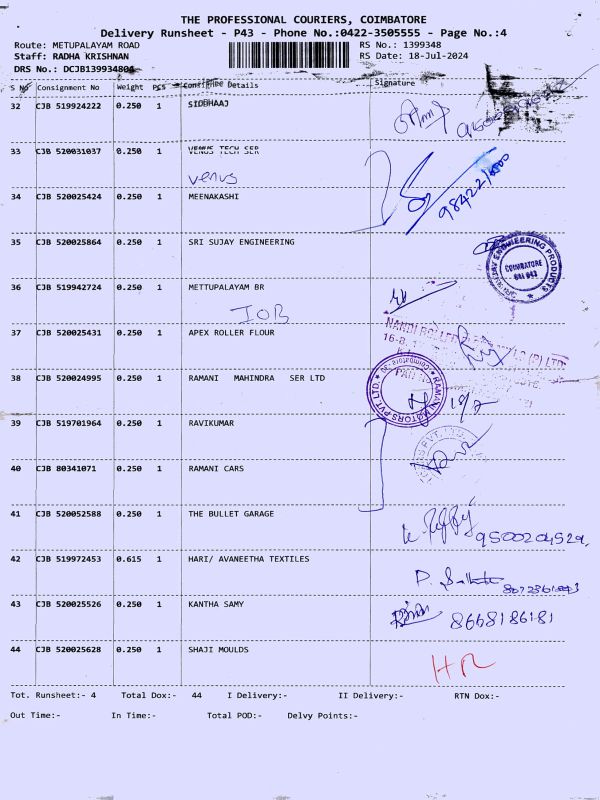 THE PROFESSIONAL COURIERS, COIMBATORE
Delivery Runsheet - P43 - Phone No.:0422-3505555 - Page No.:4
Route: METUPALAYAM ROAD RS No.: 1399348
Staff: RADHA KRISHNAN RS Date: 18-Jul-2024
DRS No.: DCJB139934804
S No Consignment No Weight Pcs Consignee Details Signature
32 CJB 519924222 0.250 1 SIDDHAAJ
33 CJB 520031037 0.250 1 VENUS TECH SER
Venus
34 CJB 520025424 0.250 1 MEENAKASHI
35 CJB 520025864 0.250 1 SRI SUJAY ENGINEERING
COIMBATORE
36 CJB 519942724 0.250 1 METTUPALAYAM BR
IOB
37 CJB 520025431 0.250 1 APEX ROLLER FLOUR
38 CJB 520024995 0.250 1 RAMANI MAHINDRA SER LTD
RAMANI MOTORS PVT LTD.
39 CJB 519701964 0.250 1 RAVIKUMAR
40 CJB 80341071 0.250 1 RAMANI CARS
41 CJB 520052588 0.250 1 THE BULLET GARAGE
9500204529
42 CJB 519972453 0.615 1 HARI/ AVANEETHA TEXTILES
43 CJB 520025526 0.250 1 KANTHA SAMY
8668186181
44 CJB 520025628 0.250 1 SHAJI MOULDS
HR
Tot. Runsheet:- 4 Total Dox:- 44 I Delivery:- II Delivery:- RTN Dox:-
Out Time:- In Time:- Total POD:- Delvy Points:-